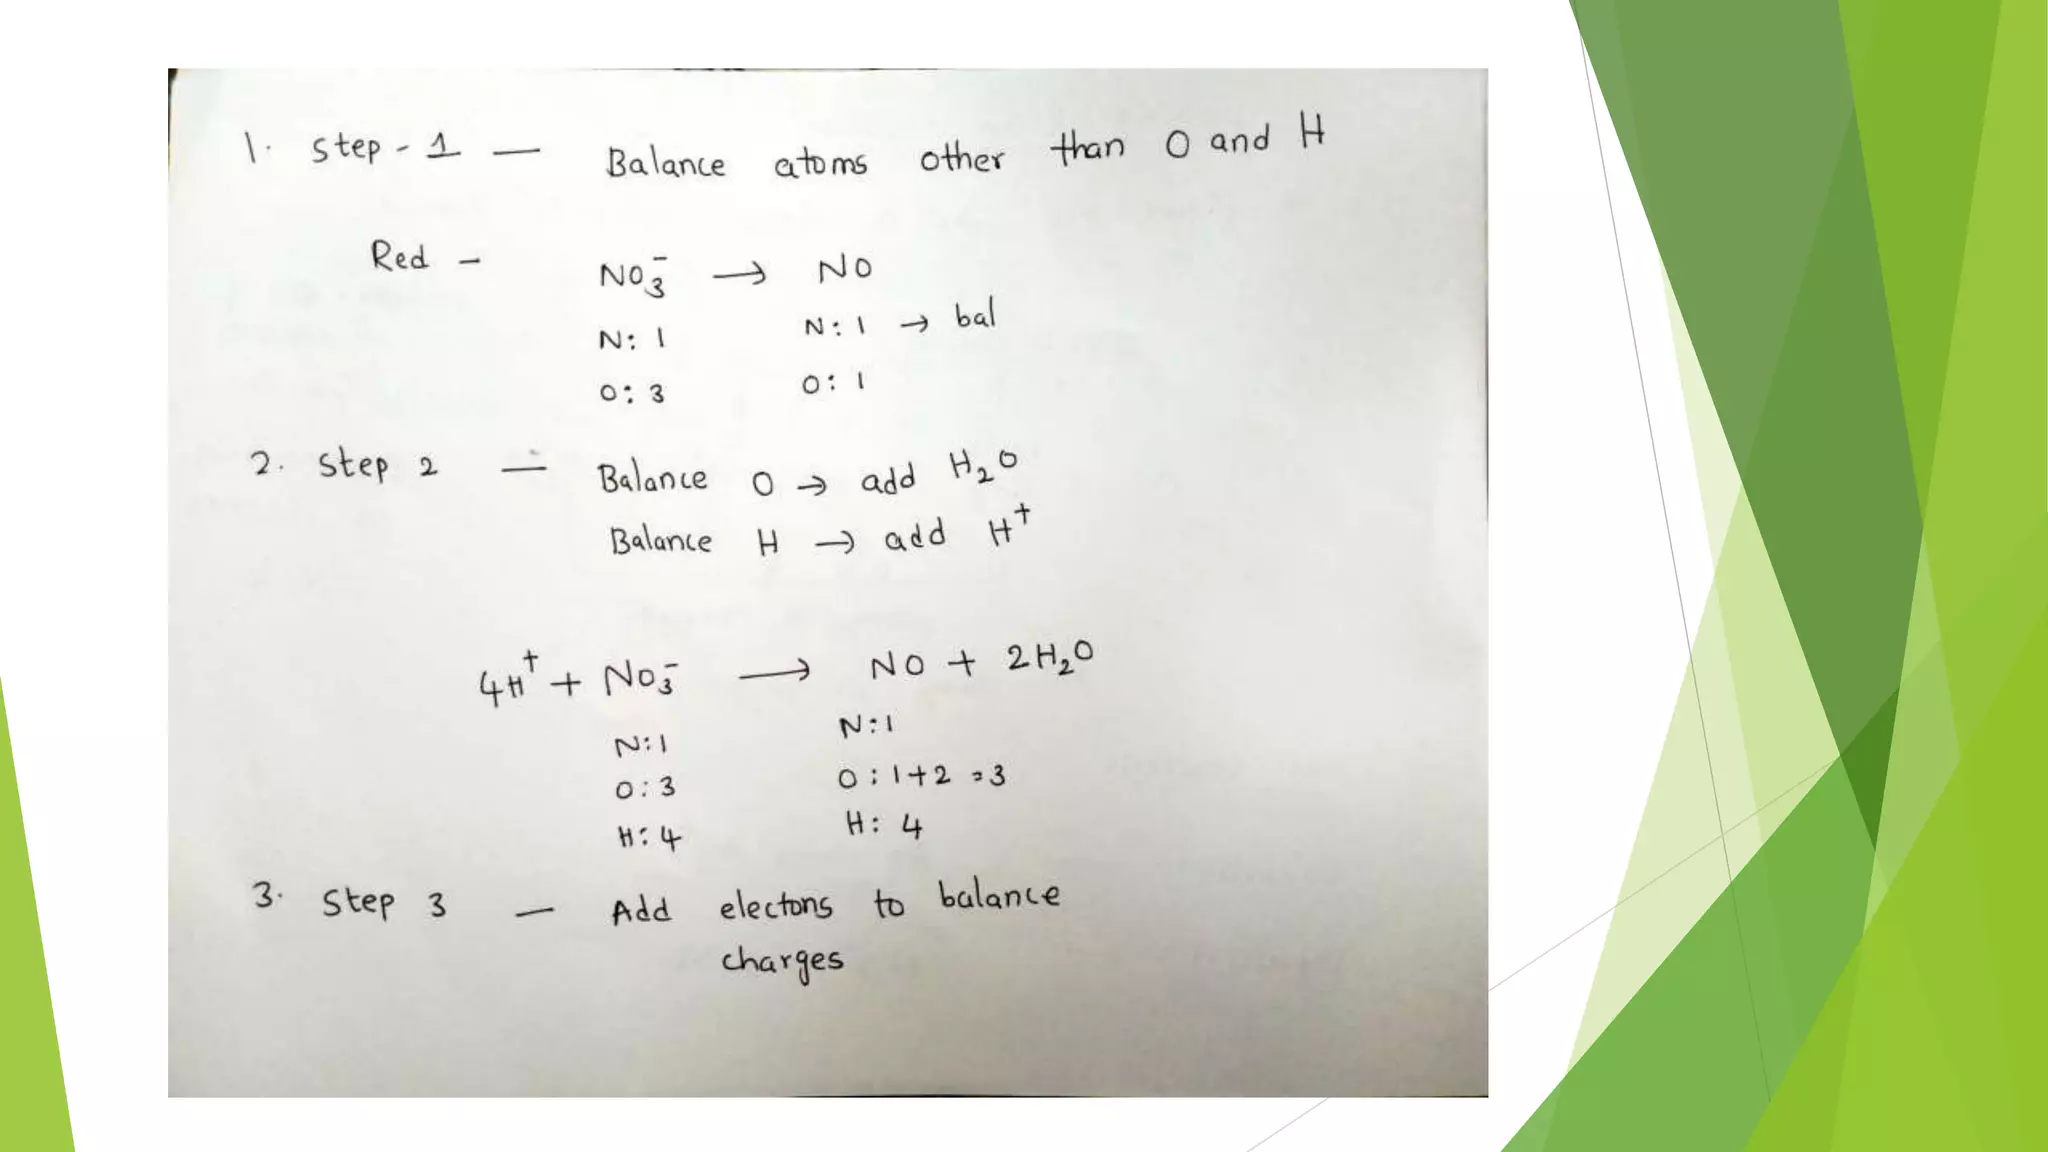 1. Step - 1 — Balance atoms other than O and H
Red - NO₃⁻ → NO
N: 1 N: 1 → bal
O: 3 O: 1
2. Step 2 — Balance O → add H₂O
Balance H → add H⁺
4H⁺ + NO₃⁻ → NO + 2H₂O
N: 1 N: 1
O: 3 O: 1+2 = 3
H: 4 H: 4
3. Step 3 — Add electons to balance
charges